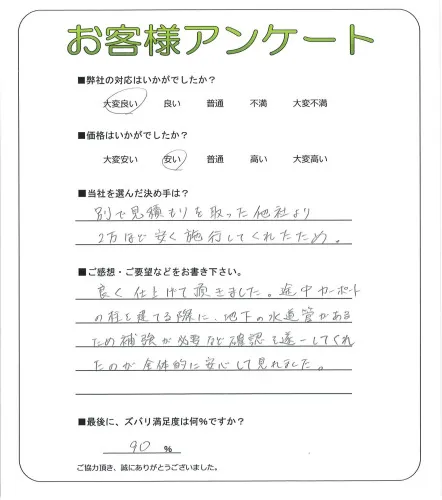 お客様アンケート
■弊社の対応はいかがでしたか？
大変良い 良い 普通 不満 大変不満
■価格はいかがでしたか？
大変安い 安い 普通 高い 大変高い
■当社を選んだ決め手は？
別で見積もりを取った他社より
2万ほど安く施行してくれたため。
■ご感想・ご要望などをお書き下さい。
良く仕上げて頂きました。途中カーポート
の柱を建てる際に、地下の水道管がある
ため補強が必要など確認を逐一してくれ
たのが全体的に安心して見れました。
■最後に、ズバリ満足度は何％ですか？
90 ％
ご協力頂き、誠にありがとうございました。